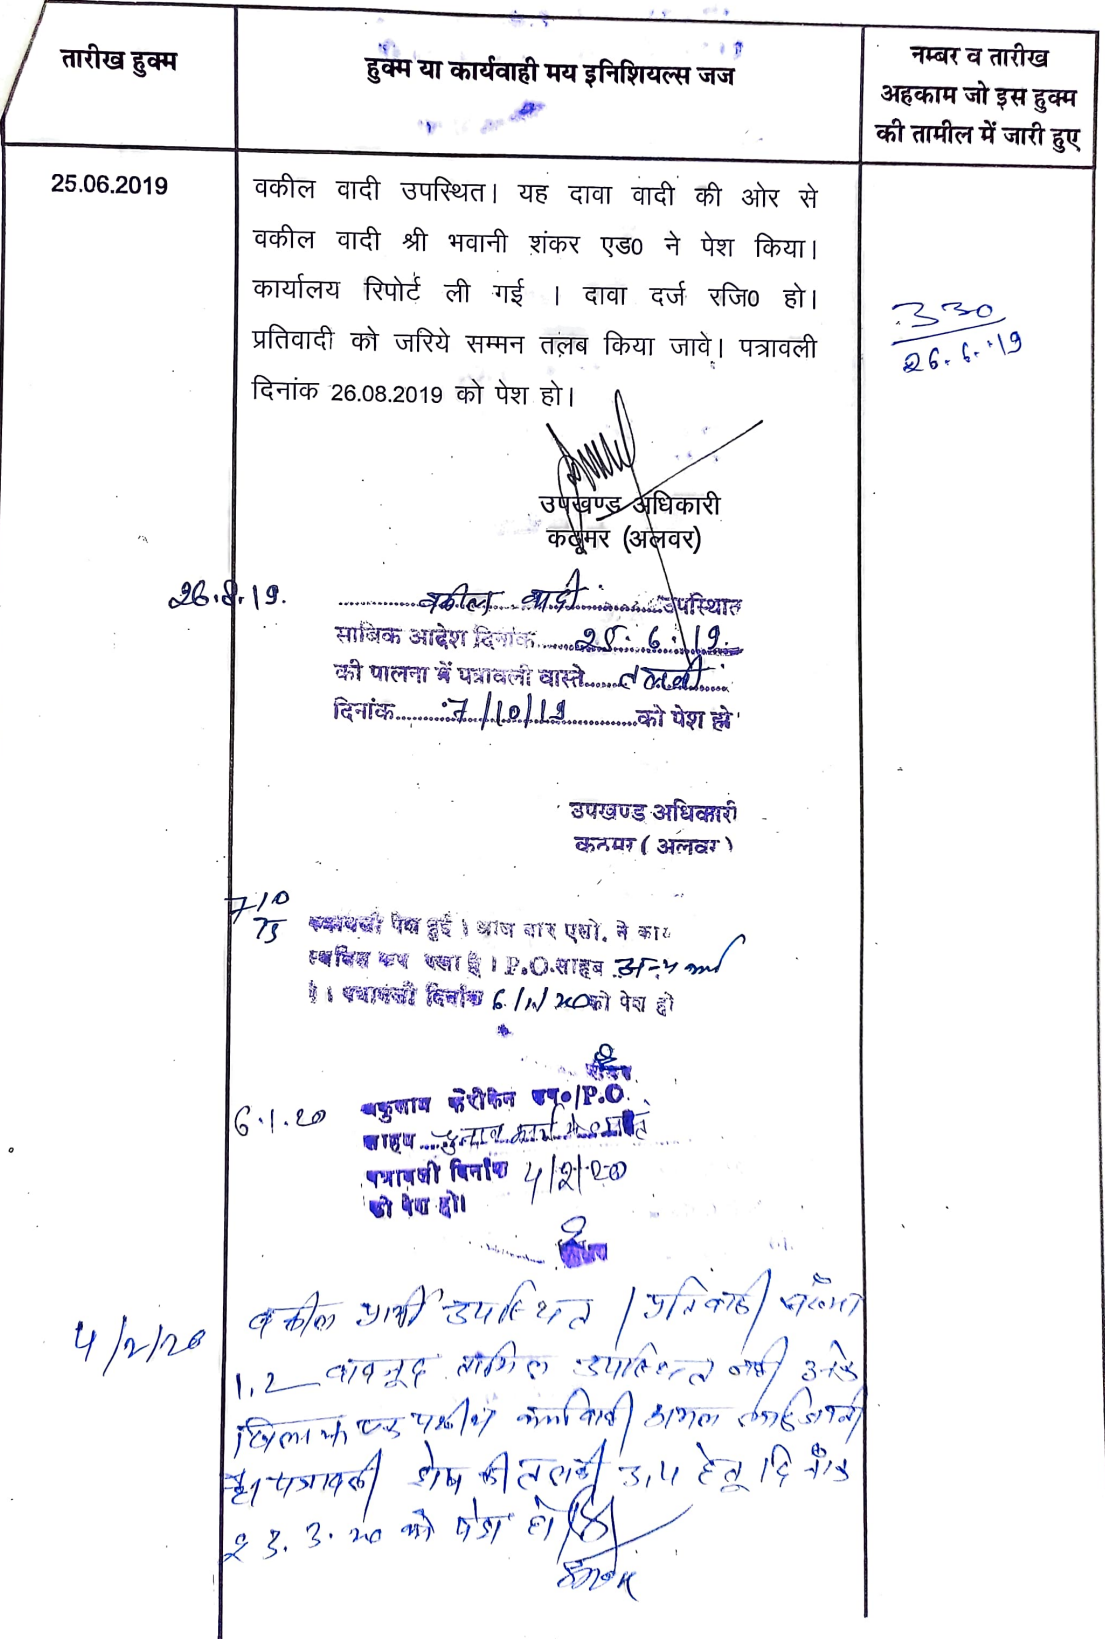 तारीख हुक्म
हुक्म या कार्यवाही मय इनिशियल्स जज
नम्बर व तारीख
अहकाम जो इस हुक्म
की तामील में जारी हुए
25.06.2019
वकील वादी उपस्थित। यह दावा वादी की ओर से
वकील वादी श्री भवानी शंकर एड0 ने पेश किया।
कार्यालय रिपोर्ट ली गई । दावा दर्ज रजि0 हो।
प्रतिवादी को जरिये सम्मन तलब किया जावे। पत्रावली
दिनांक 26.08.2019 को पेश हो।
330
26.6.19
उपखण्ड अधिकारी
कठूमर (अलवर)
26.8.19.
वकील वादी उपस्थित
साबिक आदेश दिनांक 25.6.19.
की पालना में पत्रावली वास्ते तलबी
दिनांक 7/10/19 को पेश हो
उपखण्ड अधिकारी
कठूमर (अलवर)
7/10
19
पत्रावली पेश हुई। आज बार एसो. ने कार्य
स्थगित कर रखा है। P.O. साहब अन्य कार्य
है। पत्रावली दिनांक 6/1/20 को पेश हो
6.1.20
P.O.
साहब चुनाव कार्य में व्यस्त
पत्रावली दिनांक 4/2/20
को पेश हो।
4/2/20
वकील प्रार्थी उपस्थित। प्रतिवादी संख्या
1,2 बावजूद तामिल उपस्थित नहीं उनके
खिलाफ एक पक्षीय कार्यवाही अमल
है। पत्रावली शेष की तलबी हेतू दिनाँक
23.3.20 को पेश हो।